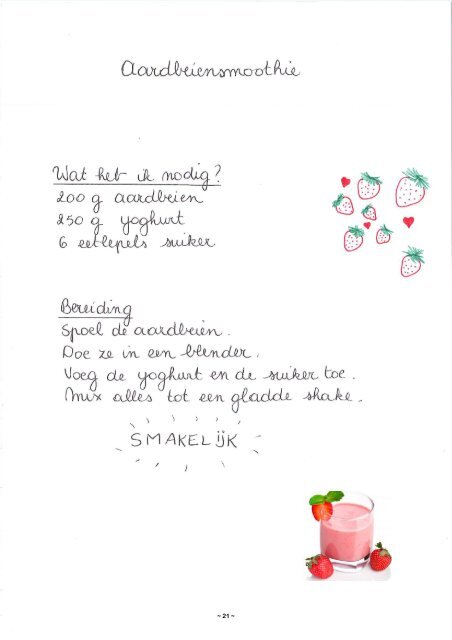 Aardbeiensmoothie
Wat heb ik nodig?
200 g aardbeien
250 g yoghurt
6 eetlepels suiker
Bereiding
Spoel de aardbeien.
Doe ze in een blender.
Voeg de yoghurt en de suiker toe.
Mix alles tot een gladde shake.
SMAKELIJK
~21~